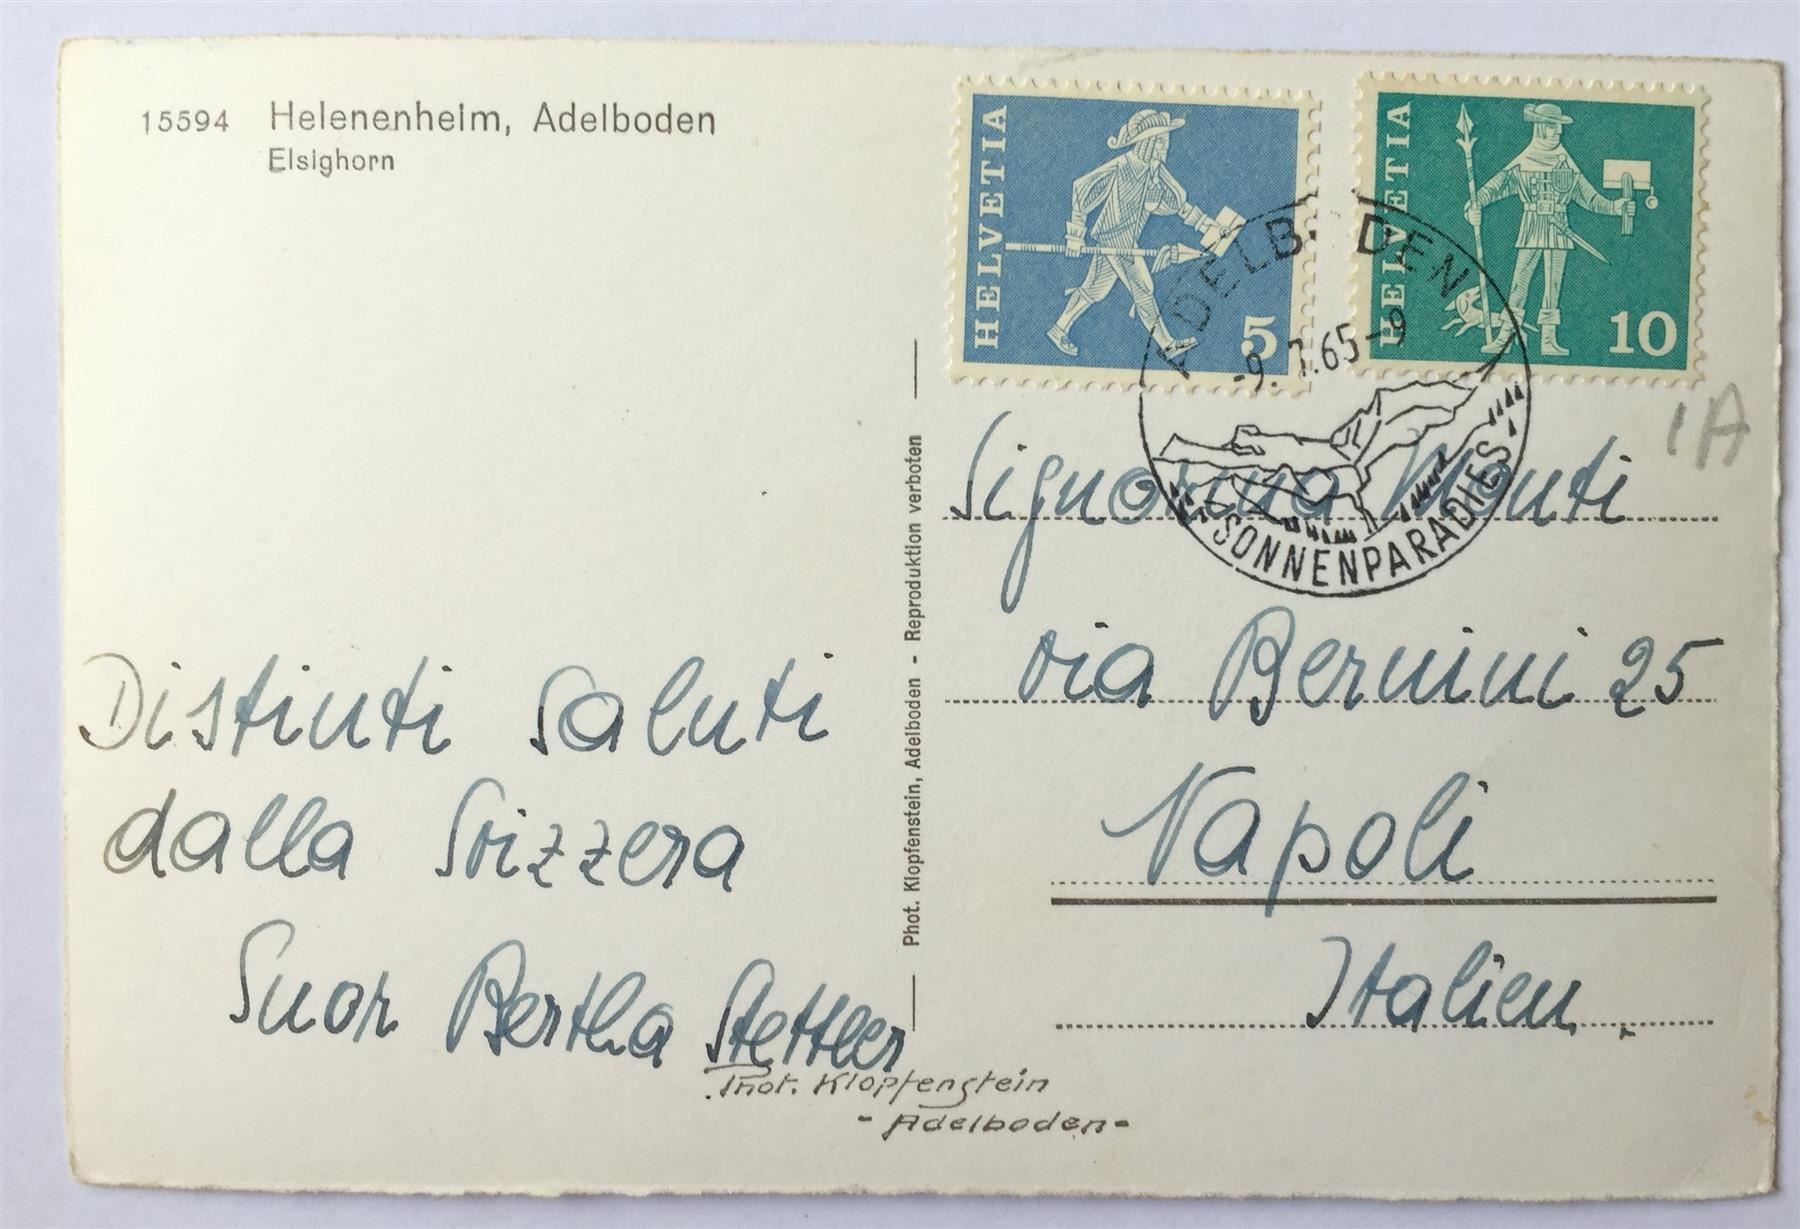 15594 Helenenheim, Adelboden
Elsighorn
HELVETIA
5
HELVETIA
10
ADELBODEN
-9. 7.65-9
SONNENPARADIES
1A
Signorina Monti
via Bernini 25
Napoli
Italien.
Phot. Klopfenstein, Adelboden - Reproduktion verboten
Distinti Saluti
dalla Svizzera
Suor Bertha Stettler
Phot. Klopfenstein
- Adelboden -